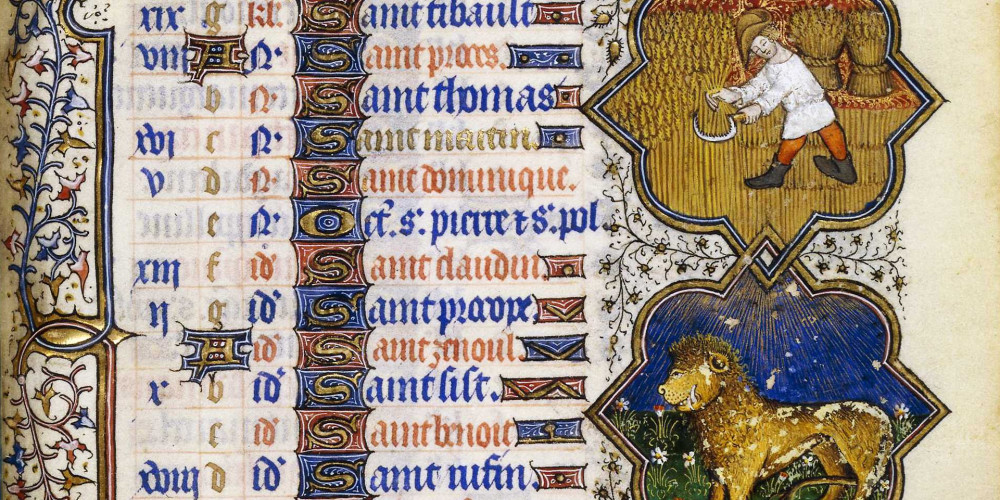 xix g kl' Saint tibault
viii A N' Saint proces.
b N' Saint thomas
xvi c N' Saint martin.
v d N' Saint dominique.
e N' Oct. s. pierre & s. pol.
xiii f id' Saint claudin.
ii g id' Saint procope.
A id' Saint zenoul.
x b id' Saint sist.
c id' Saint benoit
xviii d id' Saint rufin.